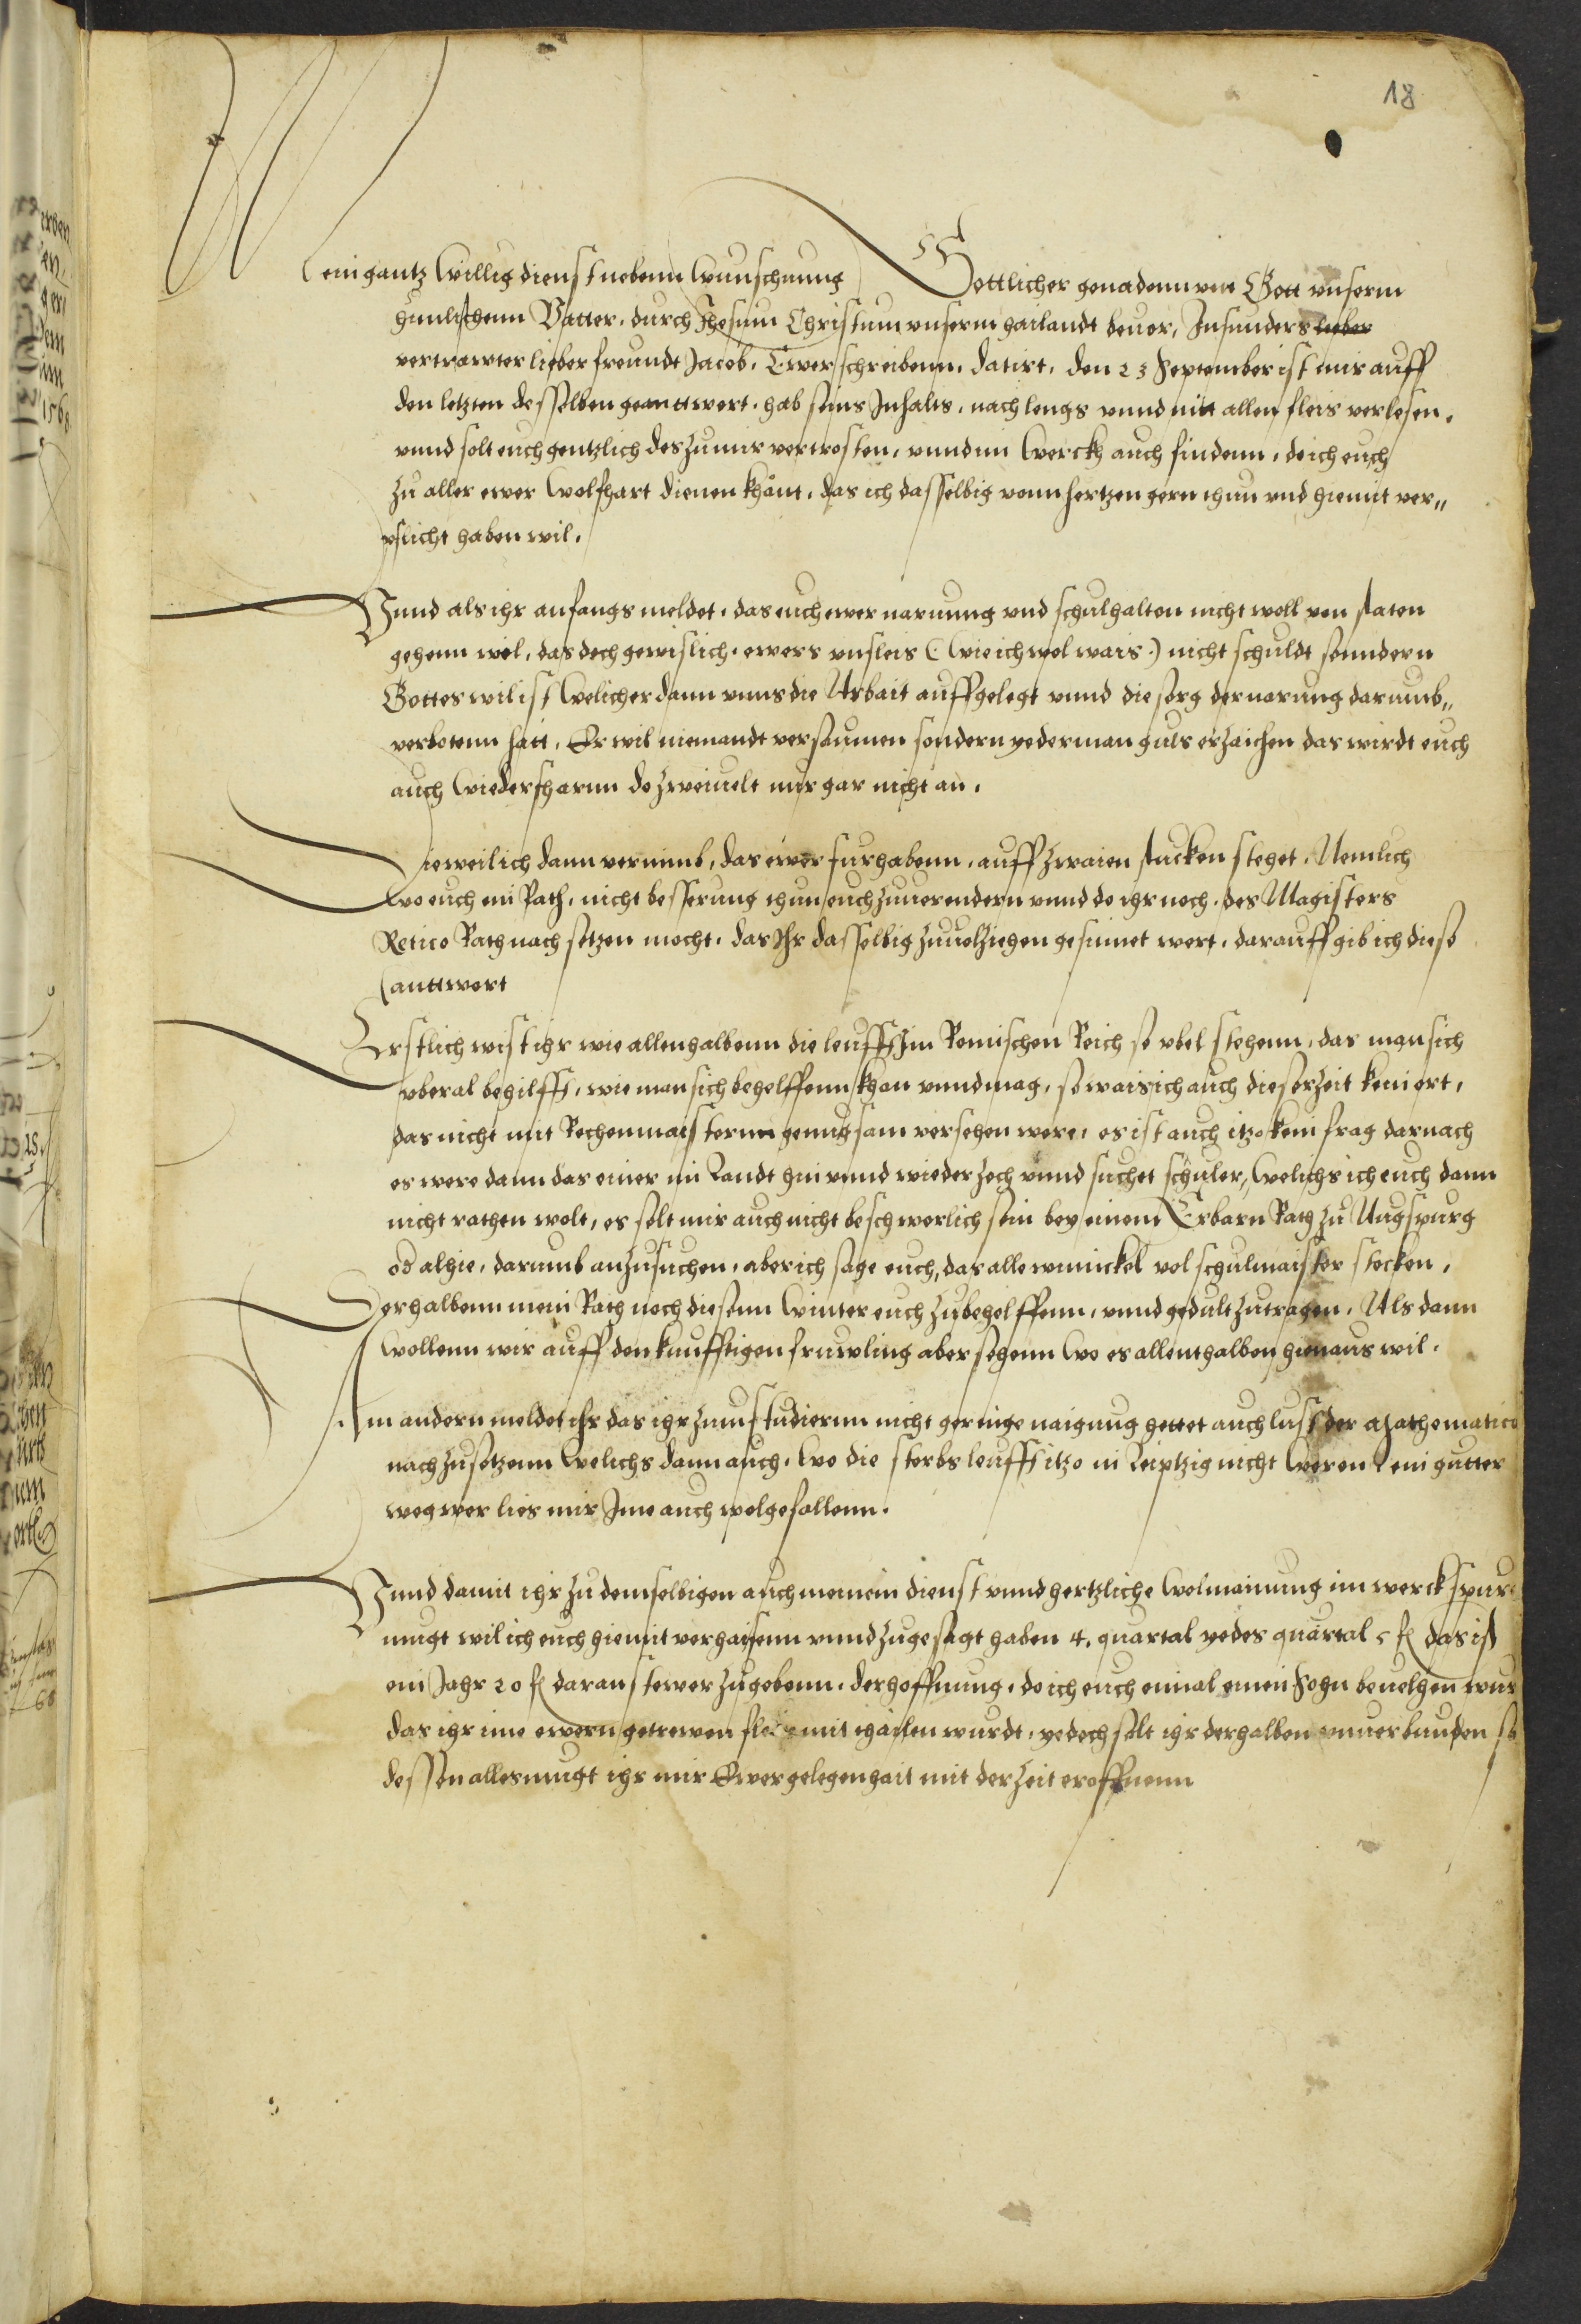 18
Mein gantz willig dienst nebenn wunschung Gottlicher genadenn von Gott unserm
himlischenn Vatter, durch Jhesum Christum unserm hailandt bevor, Insunders lieber
vertrawter lieber freundt Jacob, Ewer schreibenn, datirt, den 23 September ist mir auff
den letzten desselben geanttwert, hab seins Inhalts, nach lengs unnd mitt allen fleis verlesen,
unnd solt euch gentzlich des zu mir vertrosten, unnd im werckh auch findenn, do ich euch
zu aller ewer wolfhart dienen khönt, das ich dasselbig vonn hertzen gern thun und hiemit ver„
pflicht haben wil.
Unnd als ihr anfangs meldet, das euch ewer narung und schulhalten nicht woll von staten
gehenn wöl, das doch gewislich, ewers unfleis (: wie ich wol wais :) nicht schuldt sonndern
Gottes wil ist welicher dann unns die Arbait auffgelegt unnd die sorg der narung darumb„
verbotenn hatt, Er wil niemandt versaumen sondern yederman guts erzaichen das wirdt euch
auch wiederfharnn do zweivelt mir gar nicht an.
Dieweil ich dann vernimb, das ewer furhabenn, auff zwaien stucken stehet, Nemlich
wo euch ein Rath, nicht besserung thun euch zuverendern unnd do ihr noch, des Magisters
Retico Rath nach setzen mocht, das Ihr dasselbig zuvolziehen gesinnet wert, darauff gib ich diese
anttwort
Erstlich wist ihr wie allenhalbenn die leufft im Romischen Reich so ubel stehenn, das man sich
uberal behilfft, wie man sich behelffenn khan unnd mag, so wais ich auch dieser zeit kein ort,
das nicht mit Rechenmaisternn genugsam versehen were, es ist auch itzo kein frag darnach
es were dann das einer im Landt hin unnd wieder zoch unnd suchet schuler, welichs ich euch dann
nicht rathen wolt, es solt mir auch nicht beschwerlich sein bey einem Erbarn Rath zu Augspurg
od alhie, darumb anzusuchen, aber ich sage euch, das alle winickel vol schulmaister stecken,
Derhalbenn mein Rath noch diesenn winter euch zubehelffenn, unnd gedult zutragen, Als dann
wollenn wir auff den kunfftigen fruwling aber sehenn wo es allenthalben hienaus wil.
Am andern meldet ihr das ihr zum studiernn nicht geringe naigung hettet auch lust der Mathematica
nachzusetzenn welichs dann auch, wo die sterbs leufft itzo in Leiptzig nicht weren, ein gutter
weg wer lies mir Ime auch wolgefallenn.
Unnd damit ihr zu demselbigen auch meinen dienst unnd hertzliche wolmainung im werck spuren
mugt wil ich euch hiemit verhaisenn unnd zugesagt haben 4. quartal yedes quartal 5 fl das ist
ein Jahr 20 fl daran stewer zugebenn, der hoffnung, do ich euch einmal einen Sohn bevelhen wur
das ihr ime ewern getrewen fleis mit thailen wurdt, yedoch solt ihr derhalben unverbunden se
dessen alles mugt ihr mir Ewer gelegenhait mit der Zeit eroffnenn